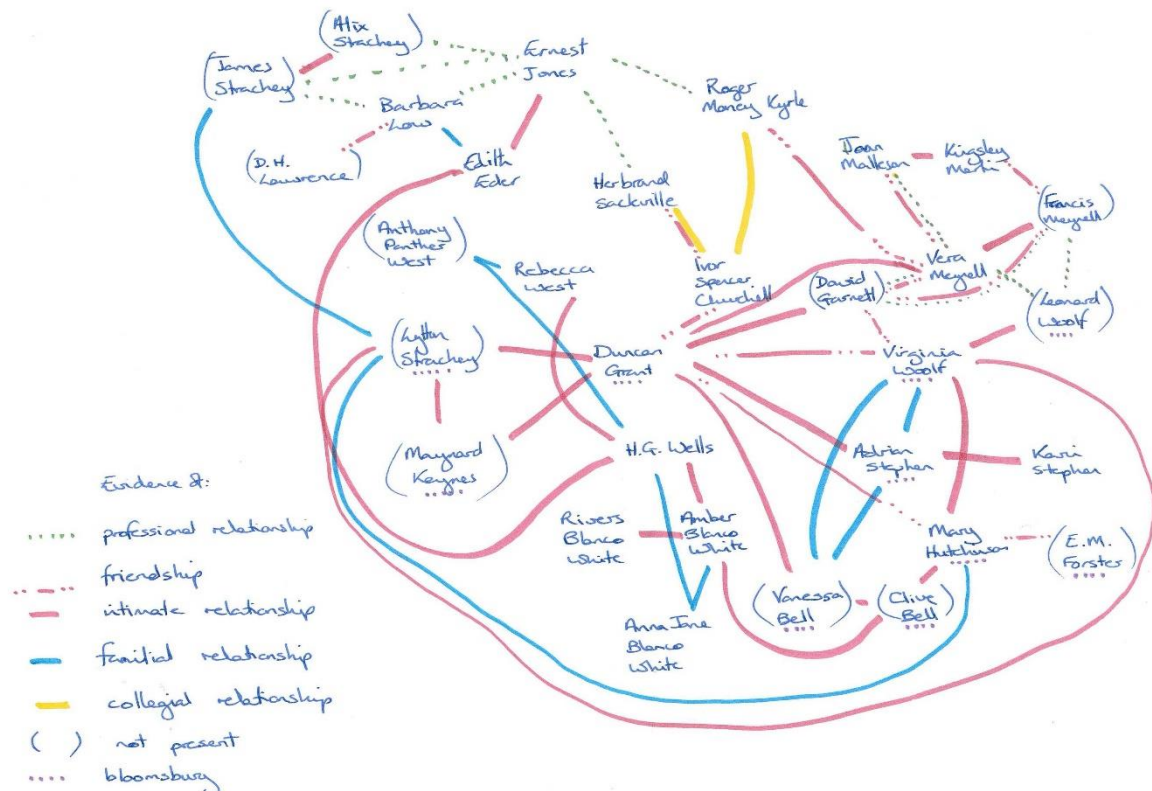 (Alix
Strachey)
(James
Strachey)
Ernest
Jones
Barbara
Low
(D.H.
Lawrence)
Edith
Eder
Roger
Money Kyrle
Joan
Malleson
Kingsley
Martin
(Francis
Meynell)
Herbrand
Sackville
(Anthony
Panther
West)
Rebecca
West
Ivor
Spencer
Churchill
Vera
Meynell
(David
Garnett)
(Leonard
Woolf)
(Lytton
Strachey)
Duncan
Grant
Virginia
Woolf
(Maynard
Keynes)
H.G. Wells
Adrian
Stephen
Karin
Stephen
Rivers
Blanco
White
Amber
Blanco
White
Mary
Hutchinson
(E.M.
Forster)
(Vanessa
Bell)
(Clive
Bell)
Anna Jane
Blanco
White
Evidence of:
professional relationship
friendship
intimate relationship
familial relationship
collegial relationship
( ) not present
bloomsbury